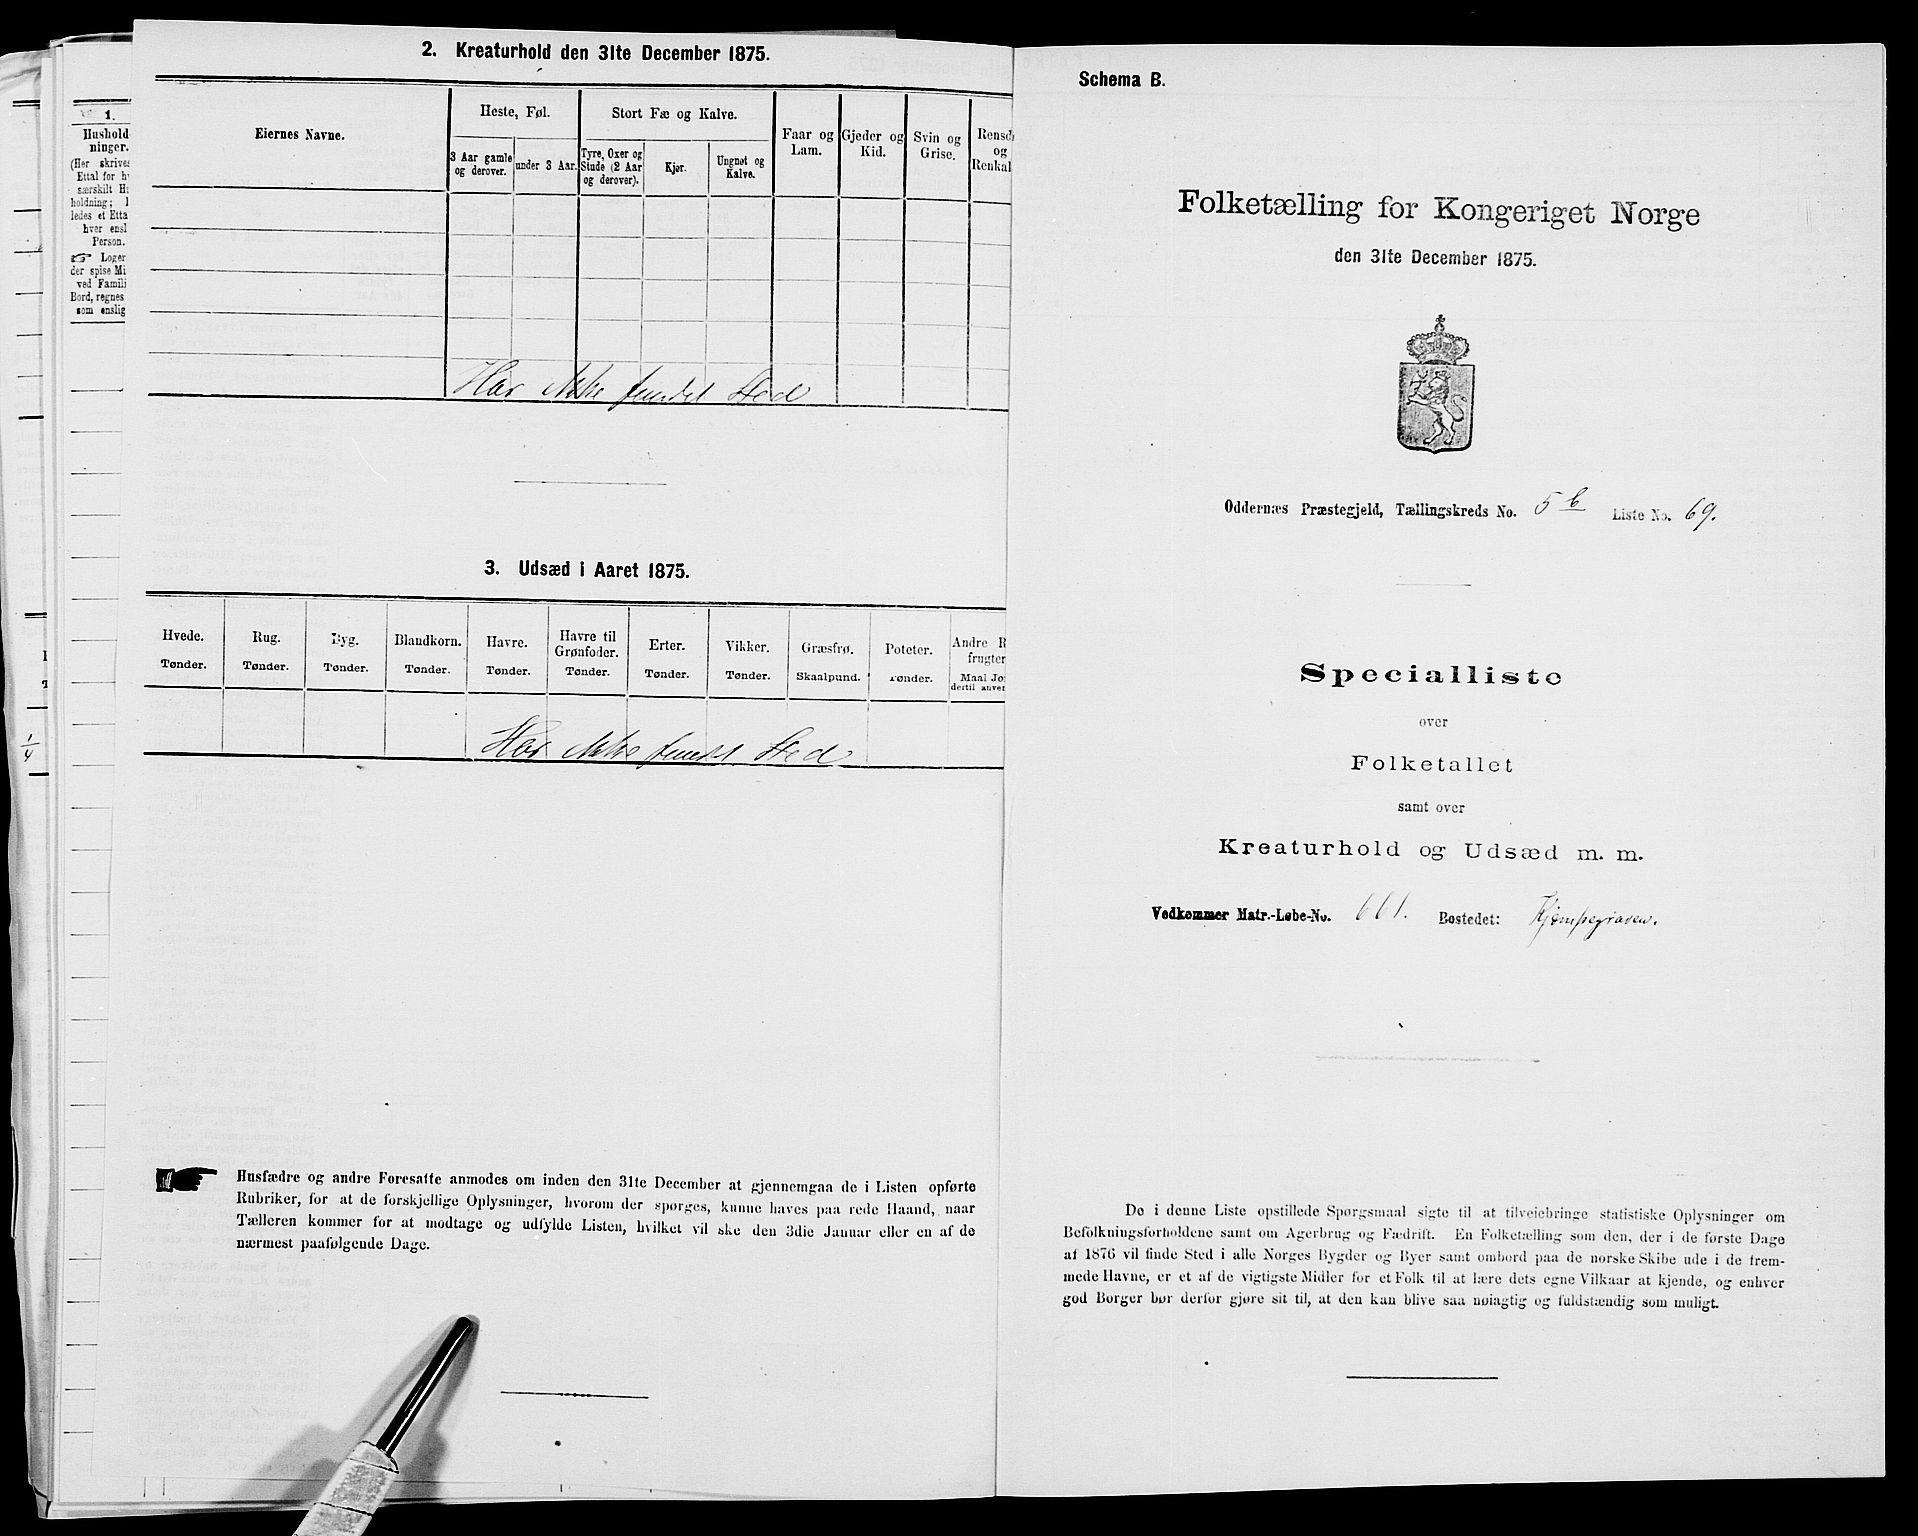 1.
Hushold-
ninger.
(Her skrives
Ettal for h
særskilt H
holdning; l
ledes et Etta
hver ensl
Person.
☞ Loger
der spise Mi
ved Famili
Bord, regnes
som enslig
1/4
2. Kreaturhold den 31te December 1875.
Eiernes Navne.
Heste, Føl.
Stort Fæ og Kalve.
Faar og Lam.
Gjeder og Kid.
Svin og Grise.
Rensd
og
Renkal
3 Aar gamle og derover.
under 3 Aar.
Tyre, Oxer og Stude (2 Aar og derover).
Kjør.
Ungnøt og Kalve.
Har ikke fundet Sted
3. Udsæd i Aaret 1875.
Hvede. Tønder.
Rug. Tønder.
Byg. Tønder.
Blandkorn. Tønder.
Havre. Tønder.
Havre til Grønfoder. Tønder.
Erter. Tønder.
Vikker. Tønder.
Græsfrø. Skaalpund.
Poteter. Tønder.
Andre R
frugter
Maal Jo
dertil anve
Har ikke fundet Sted
☞ Husfædre og andre Foresatte anmodes om inden den 31te December at gjennemgaa de i Listen opførte
Rubriker, for at de forskjellige Oplysninger, hvorom der spørges, kunne haves paa rede Haand, naar
Tælleren kommer for at modtage og udfylde Listen, hvilket vil ske den 3die Januar eller en af de
nærmest paafølgende Dage.
Schema B.
Folketælling for Kongeriget Norge
den 31te December 1875.
Oddernæs Præstegjeld, Tællingskreds No. 5 b Liste No. 69.
Specialliste
over
Folketallet
samt over
Kreaturhold og Udsæd m. m.
Vedkommer Matr.-Løbe-No. 661. Bostedet: Kjempegraven.
De i denne Liste opstillede Spørgsmaal sigte til at tilveiebringe statistiske Oplysninger om
Befolkningsforholdene samt om Agerbrug og Fædrift. En Folketælling som den, der i de første Dage
af 1876 vil finde Sted i alle Norges Bygder og Byer samt ombord paa de norske Skibe ude i de frem-
mede Havne, er et af de vigtigste Midler for et Folk til at lære dets egne Vilkaar at kjende, og enhver
god Borger bør derfor gjøre sit til, at den kan blive saa nøiagtig og fuldstændig som muligt.